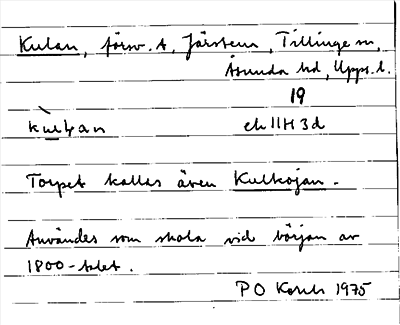 Kulan, försv. t, Järstena, Tillinge sn,
Åsunda hd, Upps. l.
19
ek 11H 3d
Torpet kallas även Kulkojan.
Användes som skola vid början av
1800-talet.
P O 1975